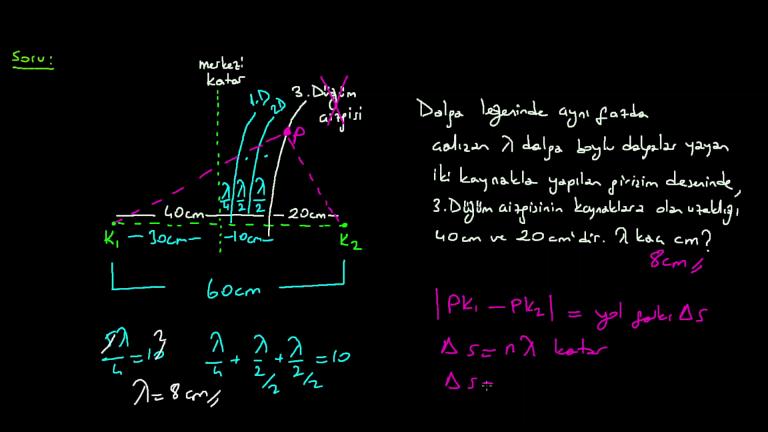 Soru:
merkezi
katar
1.D
2D
3. Düğüm
çizgisi
P
λ/4
λ/2
λ/2
40cm
20cm
K₁
30cm
10cm
K₂
60cm
5λ/4 = 10
λ/4 + λ/2 + λ/2 = 10
/2 /2
λ = 8 cm
Dalga leğeninde aynı fazda
çalışan λ dalga boylu dalgalar yayan
iki kaynakla yapılan girişim deseninde,
3. Düğüm çizgisinin kaynaklara olan uzaklığı,
40cm ve 20cm'dir. λ kaç cm?
8cm
|PK₁ - PK₂| = yol farkı Δs
Δs = nλ katar
Δs =